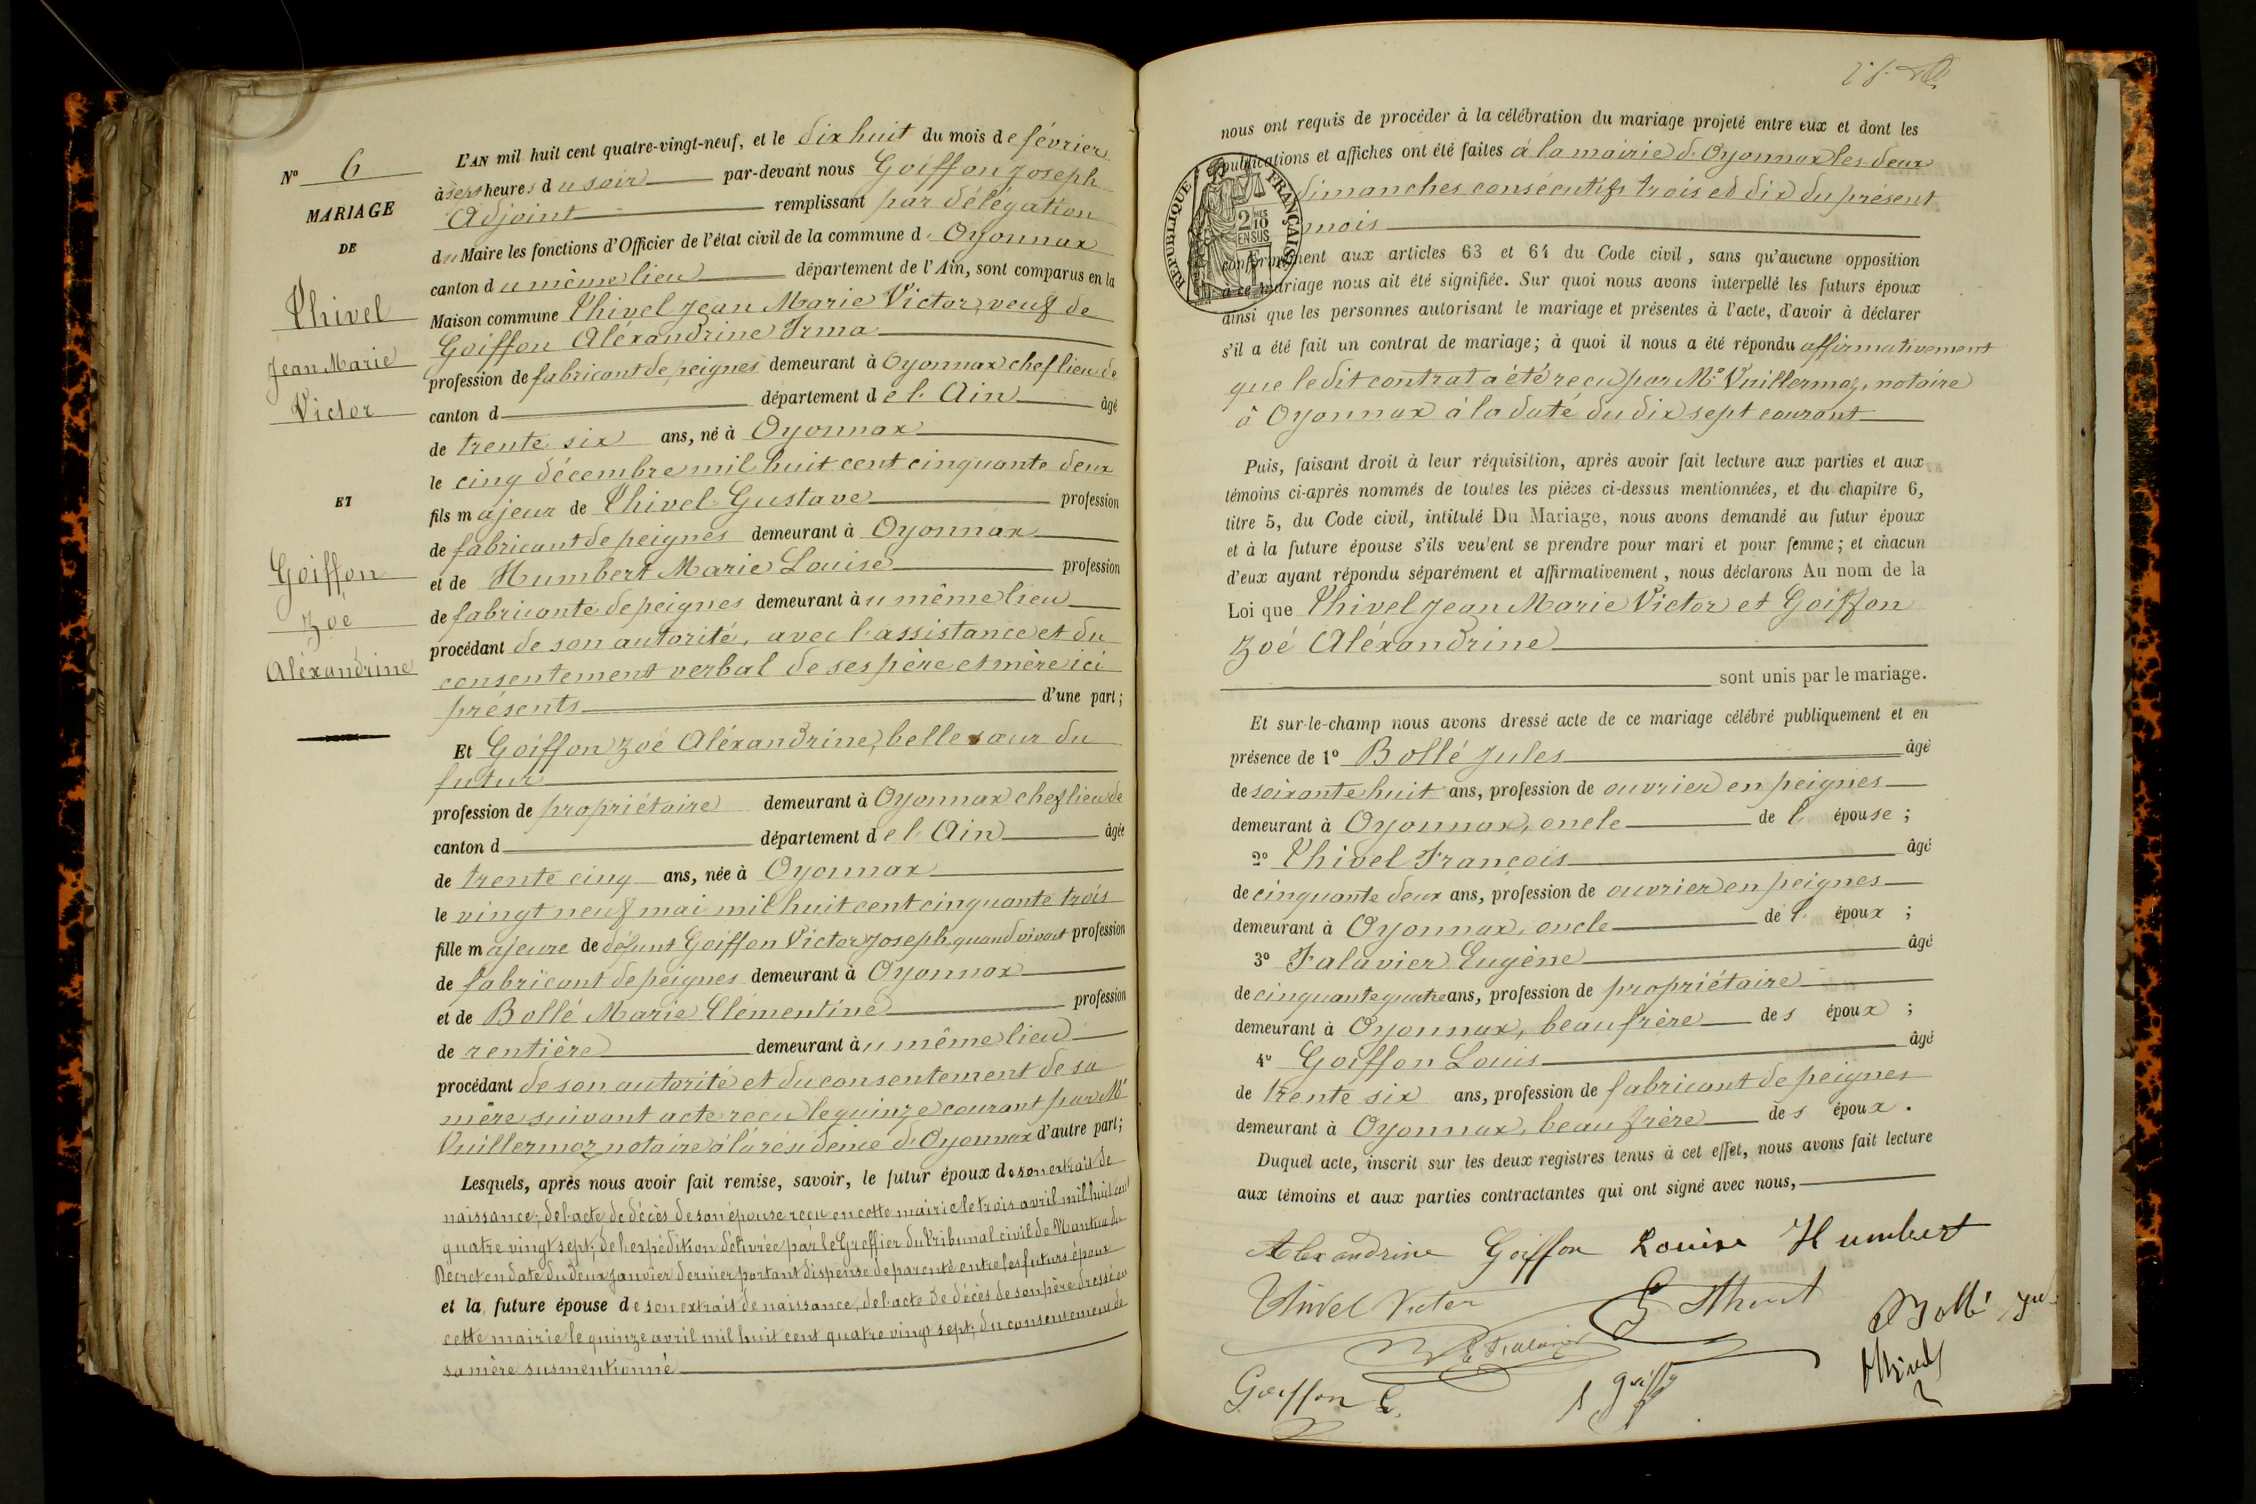 N° 6
MARIAGE
DE
Thivel
Jean Marie
Victor
ET
Goiffon
Zoé
Aléxandrine
L'AN mil huit cent quatre-vingt-neuf, et le dix huit du mois de février
à sept heures du soir par-devant nous Goiffon Joseph
Adjoint remplissant par délégation
du Maire les fonctions d'Officier de l'état civil de la commune d'Oyonnax
canton du même lieu département de l'Ain, sont comparus en la
Maison commune Thivel Jean Marie Victor, veuf de
Goiffon Aléxandrine Irma
profession de fabricant de peignes demeurant à Oyonnax chef lieu de
canton d département de l'Ain âgé
de trente six ans, né à Oyonnax
le cinq décembre mil huit cent cinquante deux
fils majeur de Thivel Gustave profession
de fabricant de peignes demeurant à Oyonnax
et de Humbert Marie Louise profession
de fabricante de peignes demeurant au même lieu
procédant de son autorité, avec l'assistance et du
consentement verbal de ses père et mère ici
présents d'une part;
Et Goiffon Zoé Aléxandrine, belle sœur du
futur
profession de propriétaire demeurant à Oyonnax chef lieu de
canton d département de l'Ain âgée
de trente cinq ans, née à Oyonnax
le vingt neuf mai mil huit cent cinquante trois
fille majeure de défunt Goiffon Victor Joseph, quand vivait profession
de fabricant de peignes demeurant à Oyonnax
et de Bollé Marie Clémentine profession
de rentière demeurant au même lieu
procédant de son autorité et du consentement de sa
mère suivant acte reçu le quinze courant par Me
Vuillermoz notaire à la résidence d'Oyonnax d'autre part;
Lesquels, après nous avoir fait remise, savoir, le futur époux de son extrait de
naissance; de l'acte de décès de son épouse reçu en cette mairie le trois avril mil huit cent
quatre vingt sept; de l'expédition délivrée par le Greffier du Tribunal civil de Nantua du
Décret en date du deux janvier dernier portant dispense de parenté entre les futurs époux
et la future épouse de son extrait de naissance, de l'acte de décès de son père dressé en
cette mairie le quinze avril mil huit cent quatre vingt sept; du consentement de
sa mère susmentionné
nous ont requis de procéder à la célébration du mariage projeté entre eux et dont les
publications et affiches ont été faites à la mairie d'Oyonnax les deux
dimanches consécutifs trois et dix du présent
mois
REPUBLIQUE FRANÇAISE
2 10
EN SUS
conformément aux articles 63 et 64 du Code civil, sans qu'aucune opposition
à ce mariage nous ait été signifiée. Sur quoi nous avons interpellé les futurs époux
ainsi que les personnes autorisant le mariage et présentes à l'acte, d'avoir à déclarer
s'il a été fait un contrat de mariage; à quoi il nous a été répondu affirmativement
que le dit contrat a été reçu par Me Vuillermoz, notaire
à Oyonnax à la daté du dix sept courant
Puis, faisant droit à leur réquisition, après avoir fait lecture aux parties et aux
témoins ci-après nommés de toutes les pièces ci-dessus mentionnées, et du chapitre 6,
titre 5, du Code civil, intitulé Du Mariage, nous avons demandé au futur époux
et à la future épouse s'ils veulent se prendre pour mari et pour femme; et chacun
d'eux ayant répondu séparément et affirmativement, nous déclarons Au nom de la
Loi que Thivel Jean Marie Victor et Goiffon
Zoé Aléxandrine
sont unis par le mariage.
Et sur-le-champ nous avons dressé acte de ce mariage célébré publiquement et en
présence de 1° Bollé Jules âgé
de soixante huit ans, profession de ouvrier en peignes
demeurant à Oyonnax, oncle de l'épouse;
2° Thivel François âgé
de cinquante deux ans, profession de ouvrier en peignes
demeurant à Oyonnax, oncle de l'époux;
3° Falavier Eugène âgé
de cinquante quatre ans, profession de propriétaire
demeurant à Oyonnax, beau frère des époux;
4° Goiffon Louis âgé
de trente six ans, profession de fabricant de peignes
demeurant à Oyonnax, beau frère des époux.
Duquel acte, inscrit sur les deux registres tenus à cet effet, nous avons fait lecture
aux témoins et aux parties contractantes qui ont signé avec nous,
Alexandrine Goiffon Louise Humbert
Thivel Victor
Bollé
Goiffon